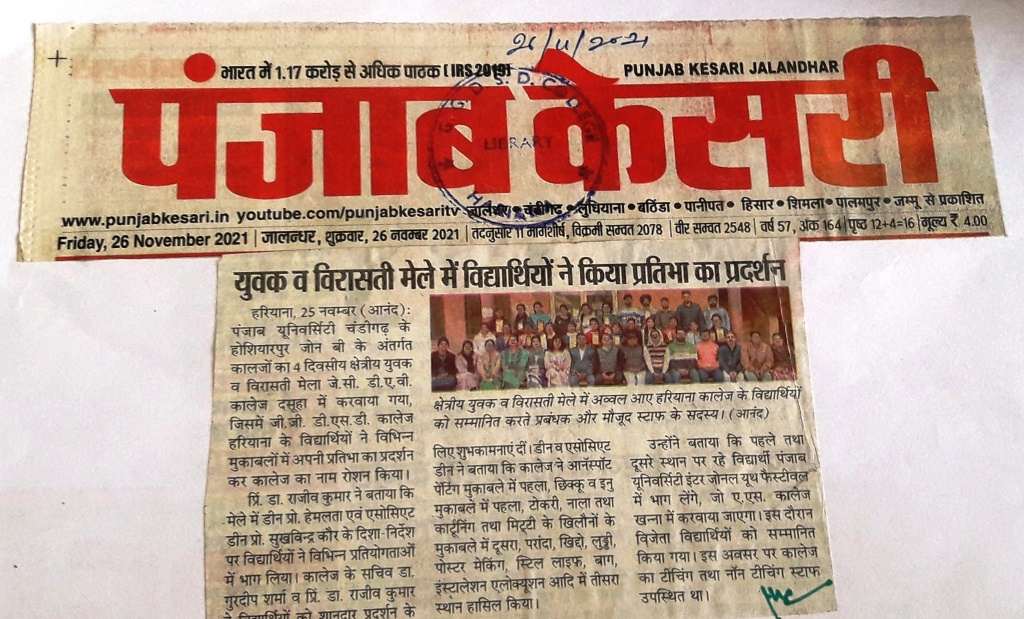 26/11/2021
भारत में 1.17 करोड़ से अधिक पाठक (IRS 2019)
PUNJAB KESARI JALANDHAR
पंजाब केसरी
G.G.D.S.D. COLLEGE
LIBRARY
www.punjabkesari.in youtube.com/punjabkesaritv जालंधर • चंडीगढ़ • लुधियाना • बठिंडा • पानीपत • हिसार • शिमला • पालमपुर • जम्मू से प्रकाशित
Friday, 26 November 2021 | जालन्धर, शुक्रवार, 26 नवम्बर 2021 | तदनुसार 11 मार्गशीर्ष, विक्रमी सम्वत 2078 | वीर सम्वत 2548 | वर्ष 57, अंक 164 | पृष्ठ 12+4=16 | मूल्य ₹ 4.00
युवक व विरासती मेले में विद्यार्थियों ने किया प्रतिभा का प्रदर्शन
हरियाना, 25 नवम्बर (आनंद):
पंजाब यूनिवर्सिटी चंडीगढ़ के
होशियारपुर जोन बी के अंतर्गत
कालजों का 4 दिवसीय क्षेत्रीय युवक
व विरासती मेला जे.सी. डी.ए.वी.
कालेज दसूहा में करवाया गया,
जिसमें जी.जी. डी.एस.डी. कालेज
हरियाना के विद्यार्थियों ने विभिन्न
मुकाबलों में अपनी प्रतिभा का प्रदर्शन
कर कालेज का नाम रोशन किया।
प्रिं. डा. राजीव कुमार ने बताया कि
मेले में डीन प्रो. हेमलता एवं एसोसिएट
डीन प्रो. सुखविन्द्र कौर के दिशा-निर्देश
पर विद्यार्थियों ने विभिन्न प्रतियोगताओं
में भाग लिया। कालेज के सचिव डा.
गुरदीप शर्मा व प्रिं. डा. राजीव कुमार
ने विद्यार्थियों को शानदार प्रदर्शन के
क्षेत्रीय युवक व विरासती मेले में अव्वल आए हरियाना कालेज के विद्यार्थियों
को सम्मानित करते प्रबंधक और मौजूद स्टाफ के सदस्य। (आनंद)
लिए शुभकामनाएं दीं। डीन व एसोसिएट
डीन ने बताया कि कालेज ने आनॅस्पॉट
पेंटिंग मुकाबले में पहला, छिक्कू व इनु
मुकाबले में पहला, टोकरी, नाला तथा
कार्टूनिंग तथा मिट्टी के खिलौनों के
मुकाबले में दूसरा, परांदा, खिद्दो, लुड्डी,
पोस्टर मेकिंग, स्टिल लाइफ, बाग,
इंस्टालेशन एलोक्यूशन आदि में तीसरा
स्थान हासिल किया।
उन्होंने बताया कि पहले तथा
दूसरे स्थान पर रहे विद्यार्थी पंजाब
यूनिवर्सिटी इंटर जोनल यूथ फैस्टीवल
में भाग लेंगे, जो ए.एस. कालेज
खन्ना में करवाया जाएगा। इस दौरान
विजेता विद्यार्थियों को सम्मानित
किया गया। इस अवसर पर कालेज
का टीचिंग तथा नॉन टीचिंग स्टाफ
उपस्थित था।